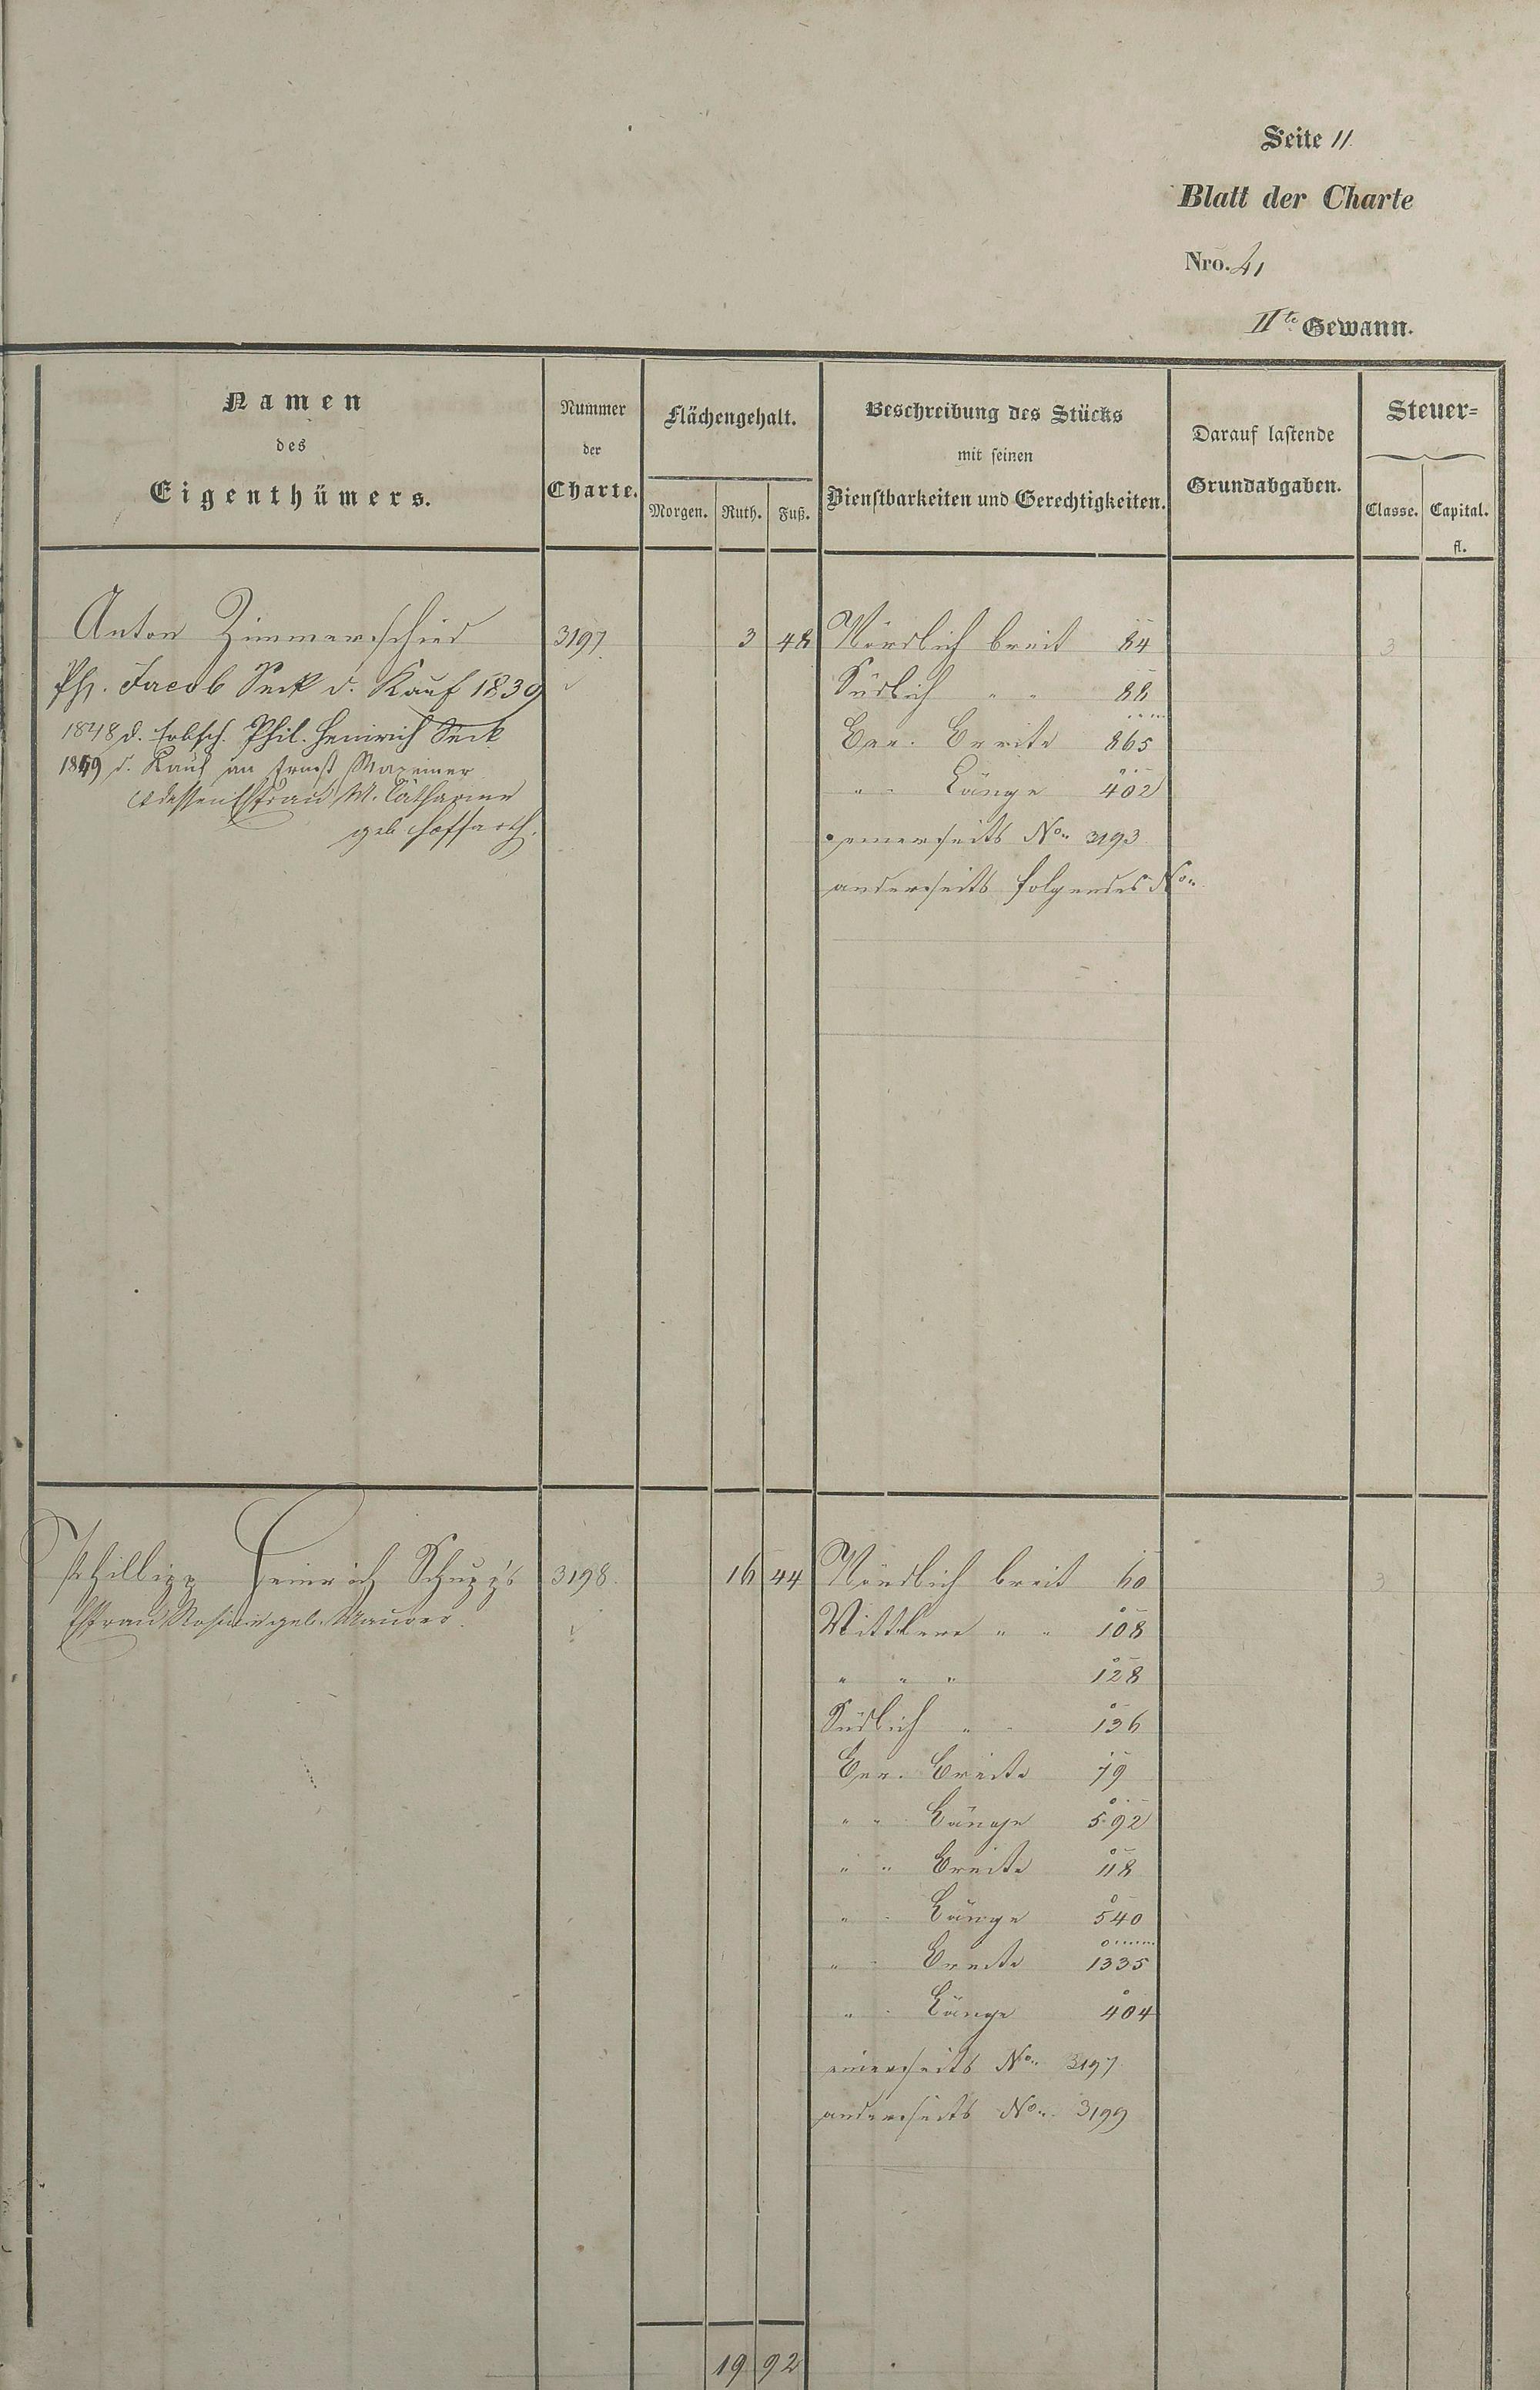 Seite 11
Blatt der Charte
Nro. 41
IIte Gewann.
Namen
des
Eigenthümers.
Nummer
der
Charte.
Flächengehalt.
Morgen. Ruth. Fuß.
Beschreibung des Stücks
mit seinen
Dienstbarkeiten und Gerechtigkeiten.
Darauf lastende
Grundabgaben.
Steuer=
Classe. Capital.
fl.
Anton Zimmerschied 3197. 3 48 Nördlich breit 84 3
Ph. Jacob Seck d. Kauf 1839 Südlich " " 88
1848 d. Erbsch. Phil. Heinrich Seck Ger. Breite 865
1849 d. Kauf an Ernst Maxeiner " " Länge 402
dessen Ehfrau M. Catharine
geb Hoffarth. einerseits No. 3193
anderseits folgendes No.
Phillipp Heinrich Schupp's 3198. 16 44 Nördlich breit 60 3
Ehfrau Rosine geb. Maurer. Mittlere " " 108
" " " 128
Südlich " " 136
Ger. Breite 79
" " Länge 592
" " Breite 118
" " Länge 540
" " Breite 1335
" " Länge 404
einerseits No. 3197
anderseits No. 3199
19 92